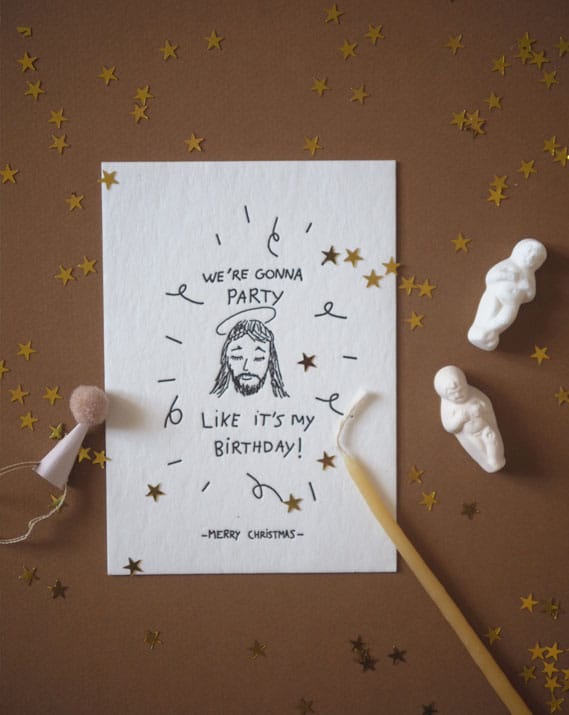 WE'RE GONNA
PARTY
LIKE IT'S MY
BIRTHDAY!
-MERRY CHRISTMAS-